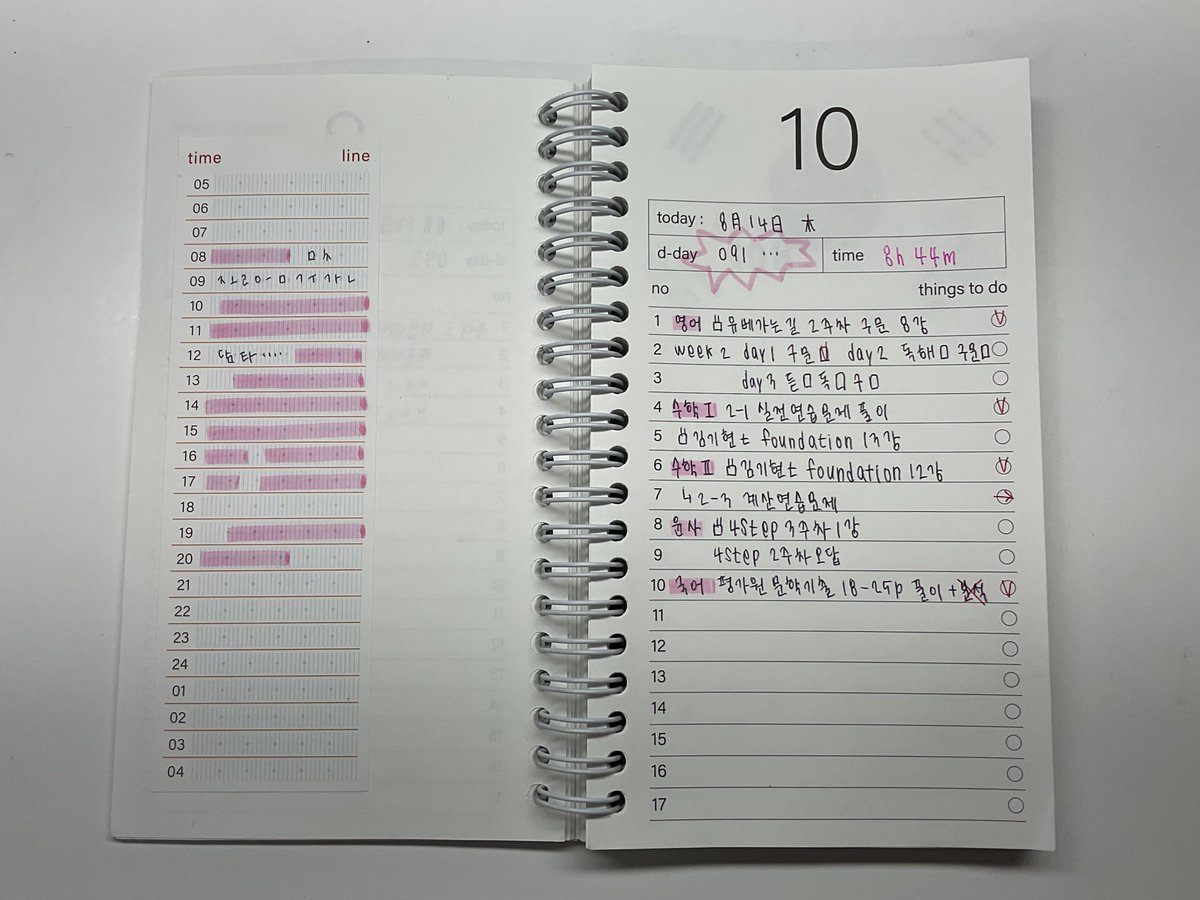 time line
05
06
07
08
09
10
11
12
13
14
15
16
17
18
19
20
21
22
23
24
01
02
03
04
10
today : 8月 14日 木
d-day 091 ... time 8h 44m
no things to do
1 영어 유베가는길 2주차 구문 8강
2 week 2 day1 구문 day2 독해 구문
3 day3 듣 독 구
4 수학 I 2-1 실전연습문제 풀이
5 김기현t foundation 13강
6 수학 II 김기현t foundation 12강
7 ↳ 2-3 계산연습문제
8 윤사 4step 3주차 1강
9 4step 2주차 오답
10 국어 평가원 문학기출 18-25p 풀이 +
11
12
13
14
15
16
17